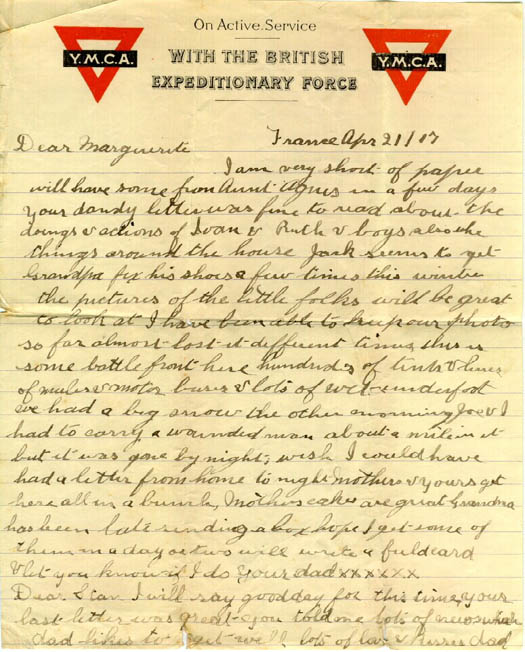 On Active Service
WITH THE BRITISH
EXPEDITIONARY FORCE
Y.M.C.A.
Y.M.C.A.
France Apr 21/17
Dear Marguerite
I am very short of paper
will have some from Aunt Agnes in a few days
your dandy letter was fine to read about the
doings & actions of Ivan & Ruth & boys also the
things around the house Jack seems to get
Grandpa fix his shoes a few times this winter
the pictures of the little folks will be great
to look at I have been able to keep our photo
so far almost lost it different times this is
some battle front here hundreds of tents & lines
of mules & motor buses & lots of wet underfoot
we had a big snow the other morning Joe & I
had to carry a wounded man about a mile in it
but it was gone by night, wish I could have
had a letter from home to night Mothers & yours get
here all in a bunch, Mothers cakes are great Grandma
has been late sending a box hope I get some of
them in a day or two will write a field card
& let you know if I do your dad xxxxxx
Dear Stan I will say good day for this time, your
last letter was great you told me lots of news which
dad likes to get well lots of love & kisses dad